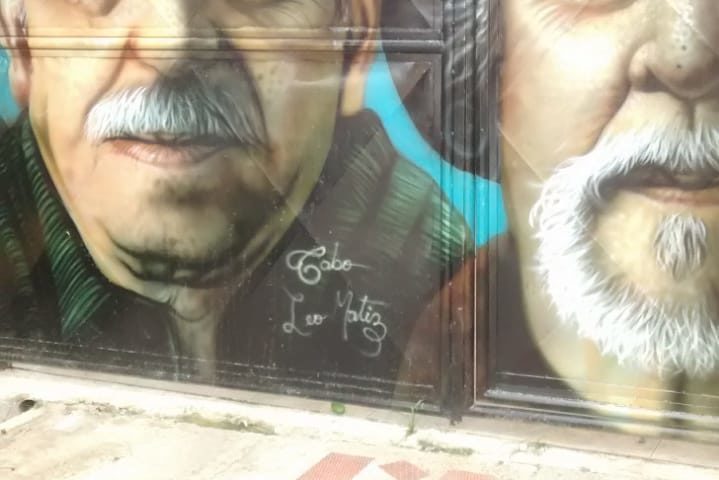 Gabo
Leo Matiz